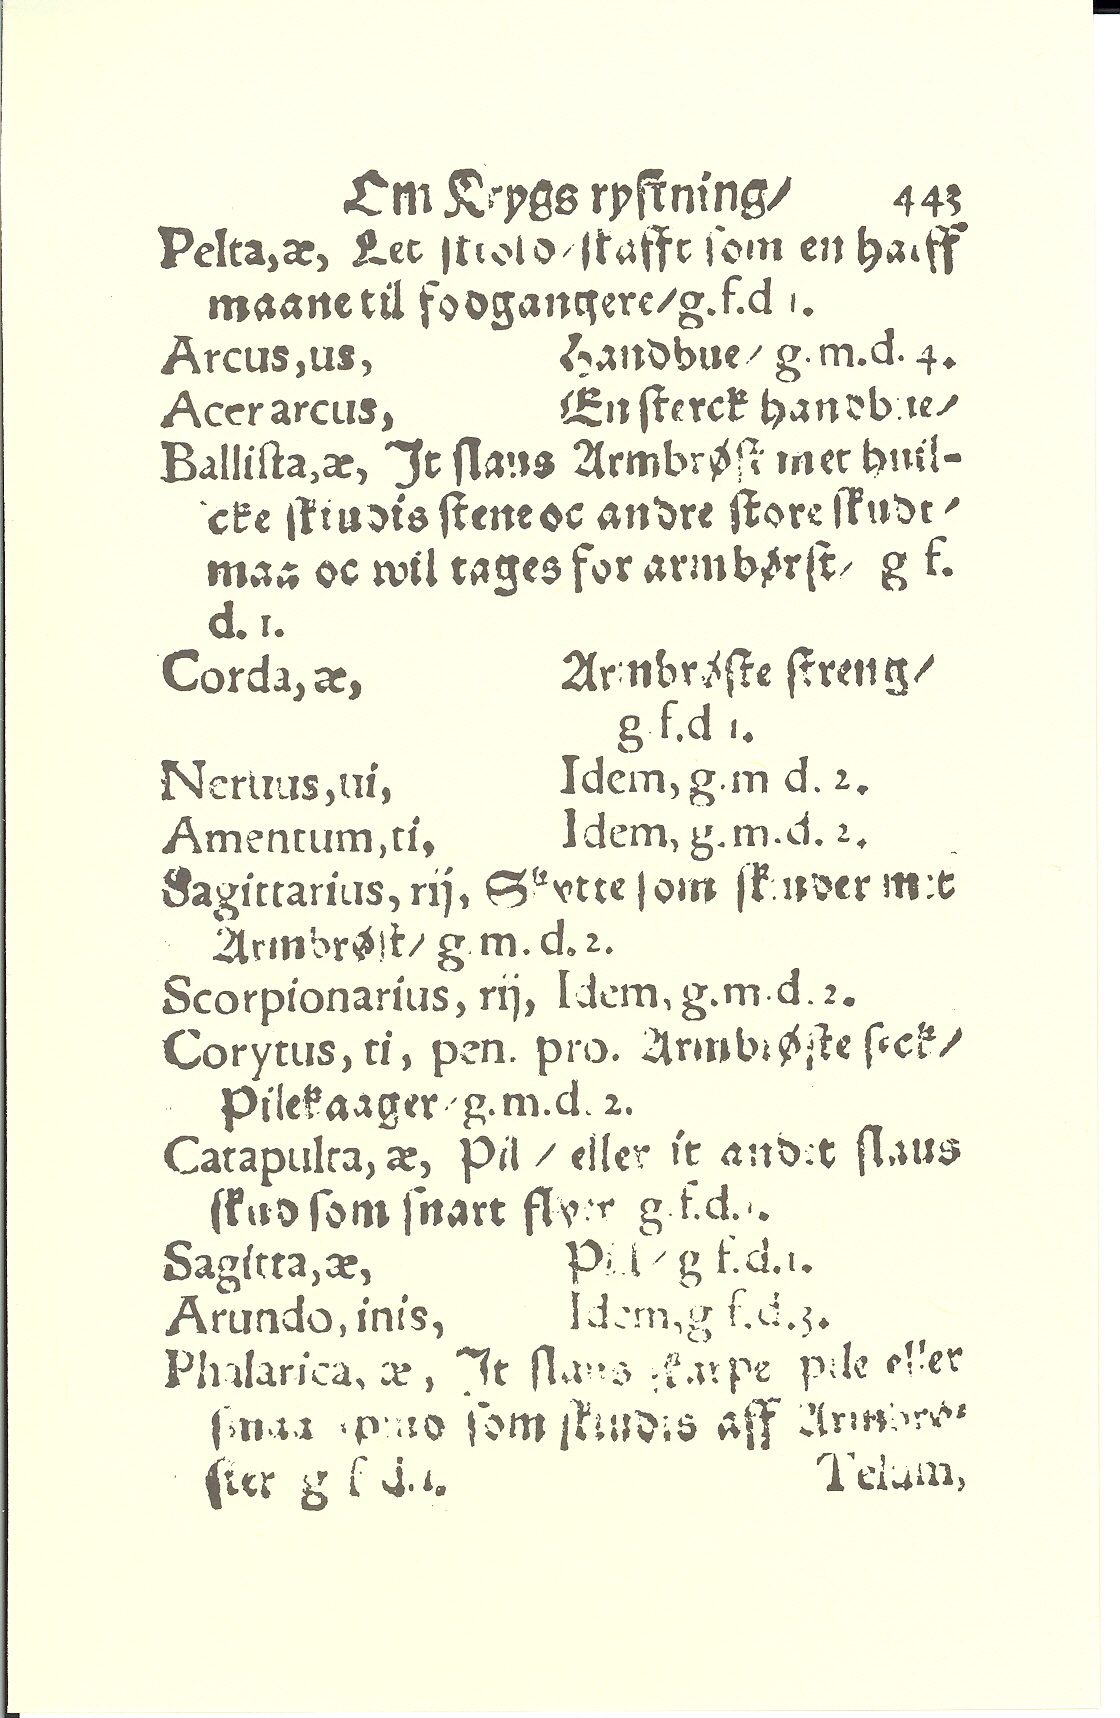 Om Krygs rystning/ 443
Pelta,æ, Let skiold/skafft som en halff
maane til fodgangere/g.f.d 1.
Arcus,us, Handbue/ g.m.d. 4.
Acer arcus, En sterck handbue/
Ballista,æ, It slaus Armbrøst met huil-
cke skiudis stene oc andre store skudt/
maã oc wil tages for armbørst/ g f.
d. 1.
Corda,æ, Armbrøste streng/
g f.d 1.
Neruus,ui, Idem, g.m d. 2.
Amentum,ti, Idem, g.m.d. 2.
Sagittarius, rij, Skytte som skiuder met
Armbrøst/ g.m.d.2.
Scorpionarius, rij, Idem, g.m.d.2.
Corytus, ti, pen. pro. Armbrøste seck/
Pilekaager/g.m.d. 2.
Catapulta, æ, Pil / eller it andet slaus
skud som snart flyer g.f.d.1.
Sagitta,æ, Pil/ g f.d.1.
Arundo, inis, Idem,g f.d.3.
Phalarica, æ, It slaus skarpe pile eller
smaa spiud som skiudis aff Armbrø-
ster g f d.1. Telum,